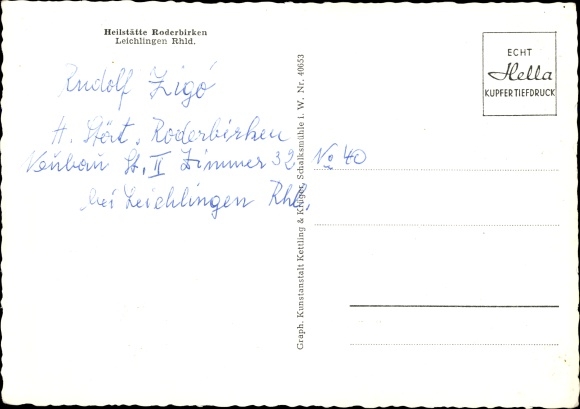 Heilstätte Roderbirken
Leichlingen Rhld.
Rudolf Zigó
H. Stört. Roderbirken
Neubau St. II Zimmer 32 No 40
bei Leichlingen Rhld.
Graph. Kunstanstalt Kettling & Krüger, Schalksmühle i. W. Nr. 40653
ECHT
Hella
KUPFERTIEFDRUCK